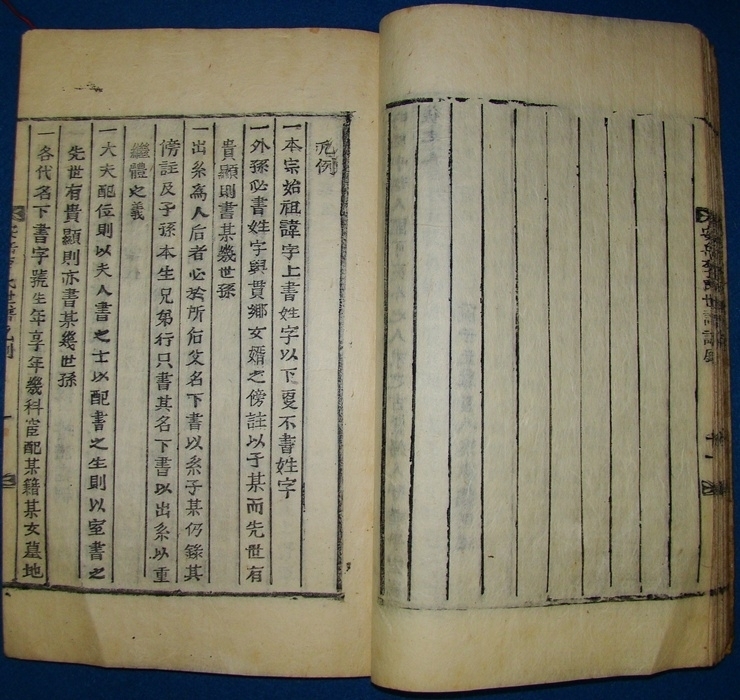 凡例
一本宗始祖諱字上書姓字以下更不書姓字
一外孫必書姓字與貫鄉女婿之傍註以子某而先世有
貴顯則書某幾世孫
一出系爲人后者必於所后父名下書以系子某仍錄其
傍註及子孫本生兄弟行只書其名下書以出系以重
繼體之義
一大夫配位則以夫人書之士以配書之生則以室書之
先世有貴顯則亦書某幾世孫
一各代名下書字號生年享年幾科宦配某籍某女墓地